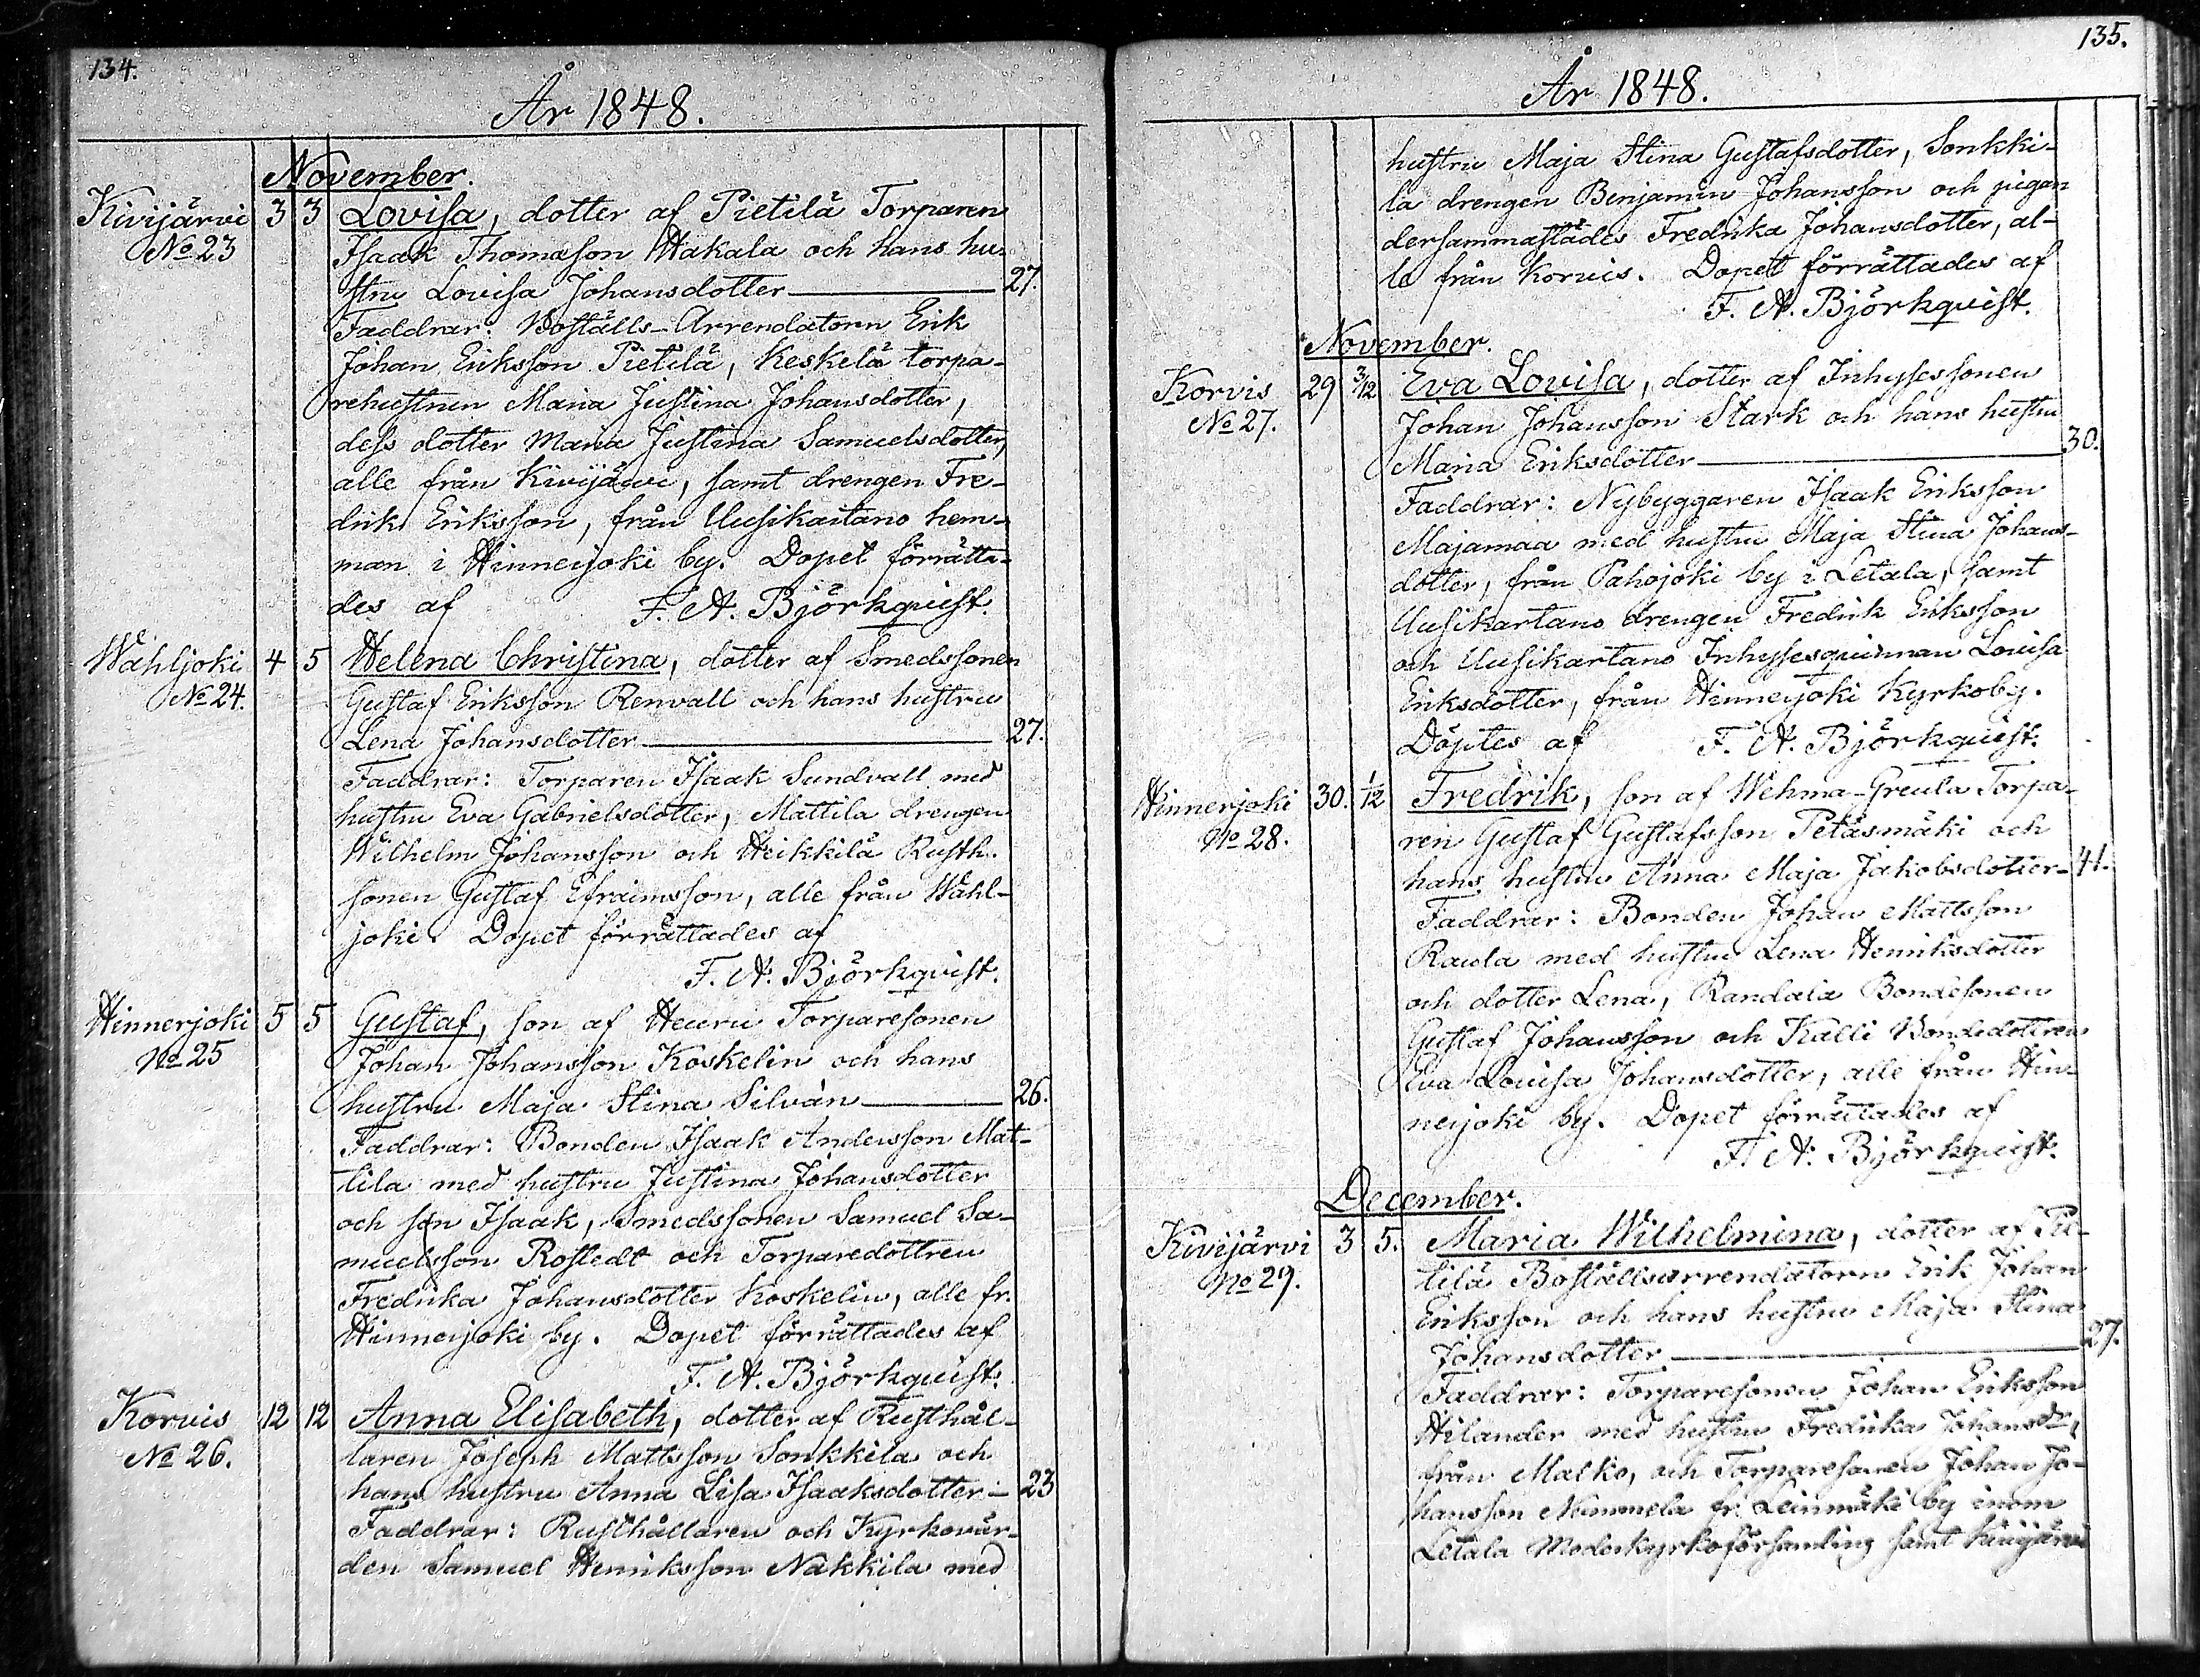 134.
År 1848.
November.
Kivijärvi 3 3 Lovisa, dotter af Pietilä Torparen
No 23 Isaak Thomasson Hakala och hans hu-
stru Lovisa Johansdotter 27.
Faddrar: Boställs-Arrendatorn Erik
Johan Eriksson Pietilä, Keskelä torpa-
rehustrun Maria Justina Johansdotter,
dess dotter Maria Justina Samuelsdotter,
alle från Kivijärvi, samt drengen Fre-
drik Eriksson, från Uusikartano hem-
man i Hinnerjoki by. Dopet förrätta-
des af F. A. Björkqvist.
Wahljoki 4 5 Helena Christina, dotter af Smedssonen
No 24. Gustaf Eriksson Renvall och hans hustru
Lena Johansdotter 27.
Faddrar: Torparen Isaak Sundvall med
hustru Eva Gabrielsdotter, Mattila drengen
Wilhelm Johansson och Heikkilä Rusth.
sonen Gustaf Efraimsson, alle från Wahl-
joki. Dopet förrättades af
F. A. Björkqvist.
Hinnerjoki 5 5 Gustaf, son af Heuru Torparesonen
No 25 Johan Johansson Koskelin och hans
hustru Maja Stina Silvàn 26.
Faddrar: Bonden Isaak Andersson Mat-
tila med hustru Justina Johansdotter
och son Isaak, Smedssonen Samuel Sa-
muelsson Rostedt och Torparedottren
Fredrika Johansdotter Koskelin, alle fr.
Hinnerjoki by. Dopet förrättades af
F. A. Björkqvist.
Korvis 12 12 Anna Elisabeth, dotter af Rusthål-
No 26. laren Joseph Mattsson Sonkkila och
hans hustru Anna Lisa Isaaksdotter 23
Faddrar: Rusthållaren och Kyrkovär-
den Samuel Henriksson Nakkila med
135.
År 1848.
hustru Maja Stina Gustafsdotter, Sonkki-
la drengen Benjamin Johansson och pigan
dersammastädes Fredrika Johansdotter, al-
le från Korvis. Dopet förrättades af
F. A. Björkqvist.
November.
Korvis 29 3/12 Eva Lovisa, dotter af Inhysessonen
No 27. Johan Johansson Stark och hans hustru
Maria Eriksdotter 30.
Faddrar: Nybyggaren Isaak Eriksson
Majamaa med hustru Maja Stina Johans-
dotter, från Pahojoki by i Letala, samt
Uusikartano drengen Fredrik Eriksson
och Uusikartano Inhysesqvinnan Lovisa
Eriksdotter, från Hinnerjoki Kyrkoby.
Döptes af F. A. Björkqvist.
Hinnerjoki 30. 1/12 Fredrik, son af Wehma-Greula Torpa-
No 28. ren Gustaf Gustafsson Petäsmäki och
hans hustru Anna Maja Jakobsdotter 41.
Faddrar: Bonden Johan Mattsson
Raula med hustru Lena Henriksdotter
och dotter Lena, Randala Bondesonen
Gustaf Johansson och Kalli Bondedottren
Eva Lovisa Johansdotter, alle från Hin-
nerjoki by. Dopet förrättades af
F. A. Björkqvist.
December.
Kivijärvi 3 5. Maria Wilhelmina, dotter af Pie-
No 29. tilä Boställsarrendatorn Erik Johan
Eriksson och hans hustru Maja Stina
Johansdotter 27.
Faddrar: Torparesonen Johan Eriksson
Hilander med hustru Fredrika Johansdr,
från Malko, och Torparesonen Johan Jo-
hansson Nummela fr. Leinmäki by inom
Letala Moderkyrkoförsamling samt Kivijärvi